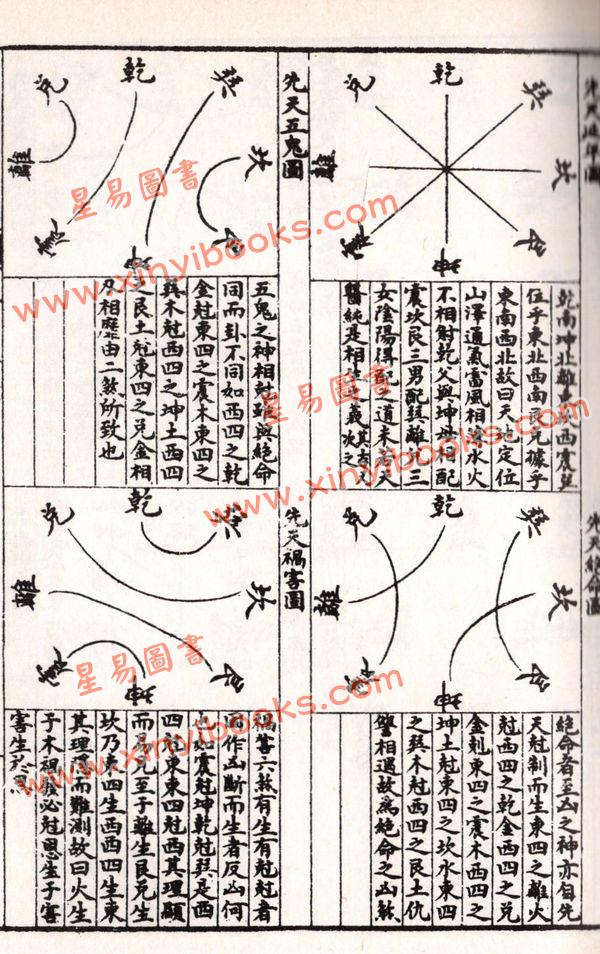 先天延年圖
兌
乾
巽
離
坎
震
坤
艮
乾南坤北離東坎西震巽
位乎東北西南艮兌據乎
東南西北故曰天地定位
山澤通氣雷風相薄水火
不相射乾父與坤母相配
震坎艮三男配巽離兌三
女陰陽得配之道未若夫
先天絕命圖
兌
乾
巽
離
坎
震
坤
艮
絕命者至凶之神亦自先
天尅制而生東四之離火
尅西四之乾金西四之兌
金剋東四之震木西四之
坤土尅東四之坎水東四
之巽木尅西四之艮土仇
讐相遇故為絕命之凶煞
先天五鬼圖
兌
乾
巽
離
坎
震
坤
艮
五鬼之神相尅雖與絕命
同而卦不同如西四之乾
金尅東四之震木東四之
巽木尅西四之坤土西四
之艮土尅東四之兌金相
相靡由二煞所致也
先天禍害圖
兌
乾
巽
離
坎
震
坤
艮
禍害六煞有生有尅尅者
而作凶斷而生者反凶何
如震尅坤乾尅巽是西
四尅東東四尅西其理顯
而易見至于離生艮兌生
坎乃東四生西西四生東
其理而難測故曰火生
于木禍發必尅恩生于害
害生於恩
星易圖書
www.xinyibooks.com
星易圖書
www.xinyibooks.com
星易圖書
www.xinyibooks.com